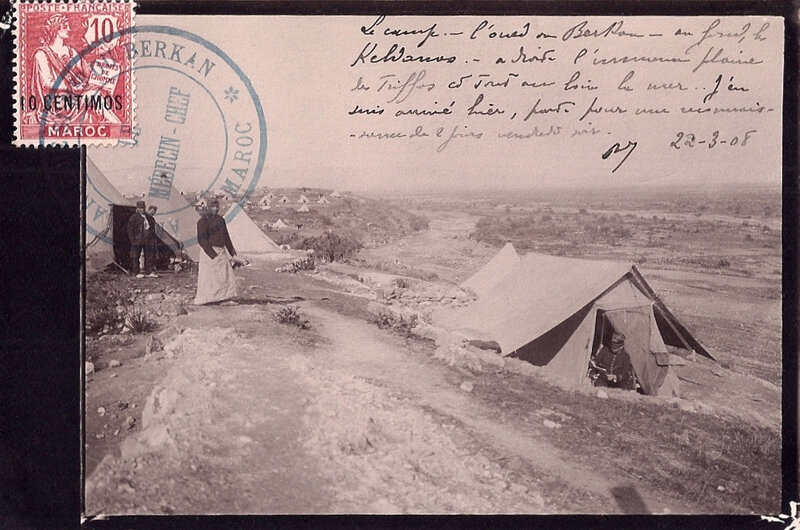 POSTE FRANÇAISE
10
10 CENTIMOS
MAROC
BERKAN
MÉDECIN-CHEF
MAROC
Le camp. - l'oued ou Berkan - au fond, les
Kebdanas. - a droite l'immense plaine
des Triffas et tout au loin la mer. J'en
suis arrivé hier, partir pour une reconnais-
-sance de 2 jours vendredi soir.
22-3-08